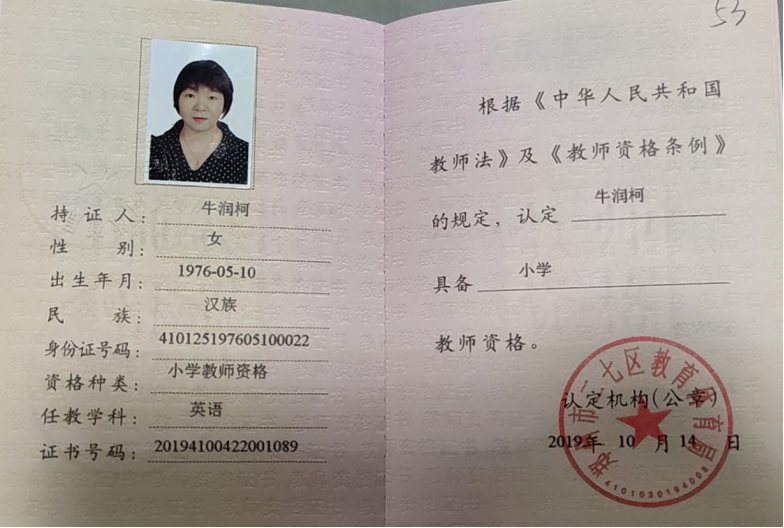 53
持证人：牛润柯
性别：女
出生年月：1976-05-10
民族：汉族
身份证号码：410125197605100022
资格种类：小学教师资格
任教学科：英语
证书号码：20194100422001089
根据《中华人民共和国
教师法》及《教师资格条例》
的规定，认定 牛润柯
具备 小学
教师资格。
认定机构(公章)
2019年 10 月 14 日
郑州市二七区教育体育局
4101030194008